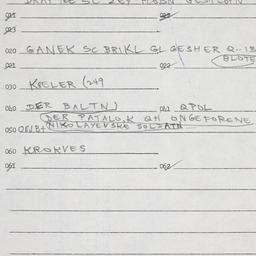 021 022
023
020 GANEK SC BRIKL GL GESHER Q..13
021 022 BLOTE
030 KELER (249
060 DER BALTN) 061 QPDL
DER PATALOK QH ONGEFORENE
050 NIKOLAYEVSKE SOLDATN
060 KROKVES
061 062